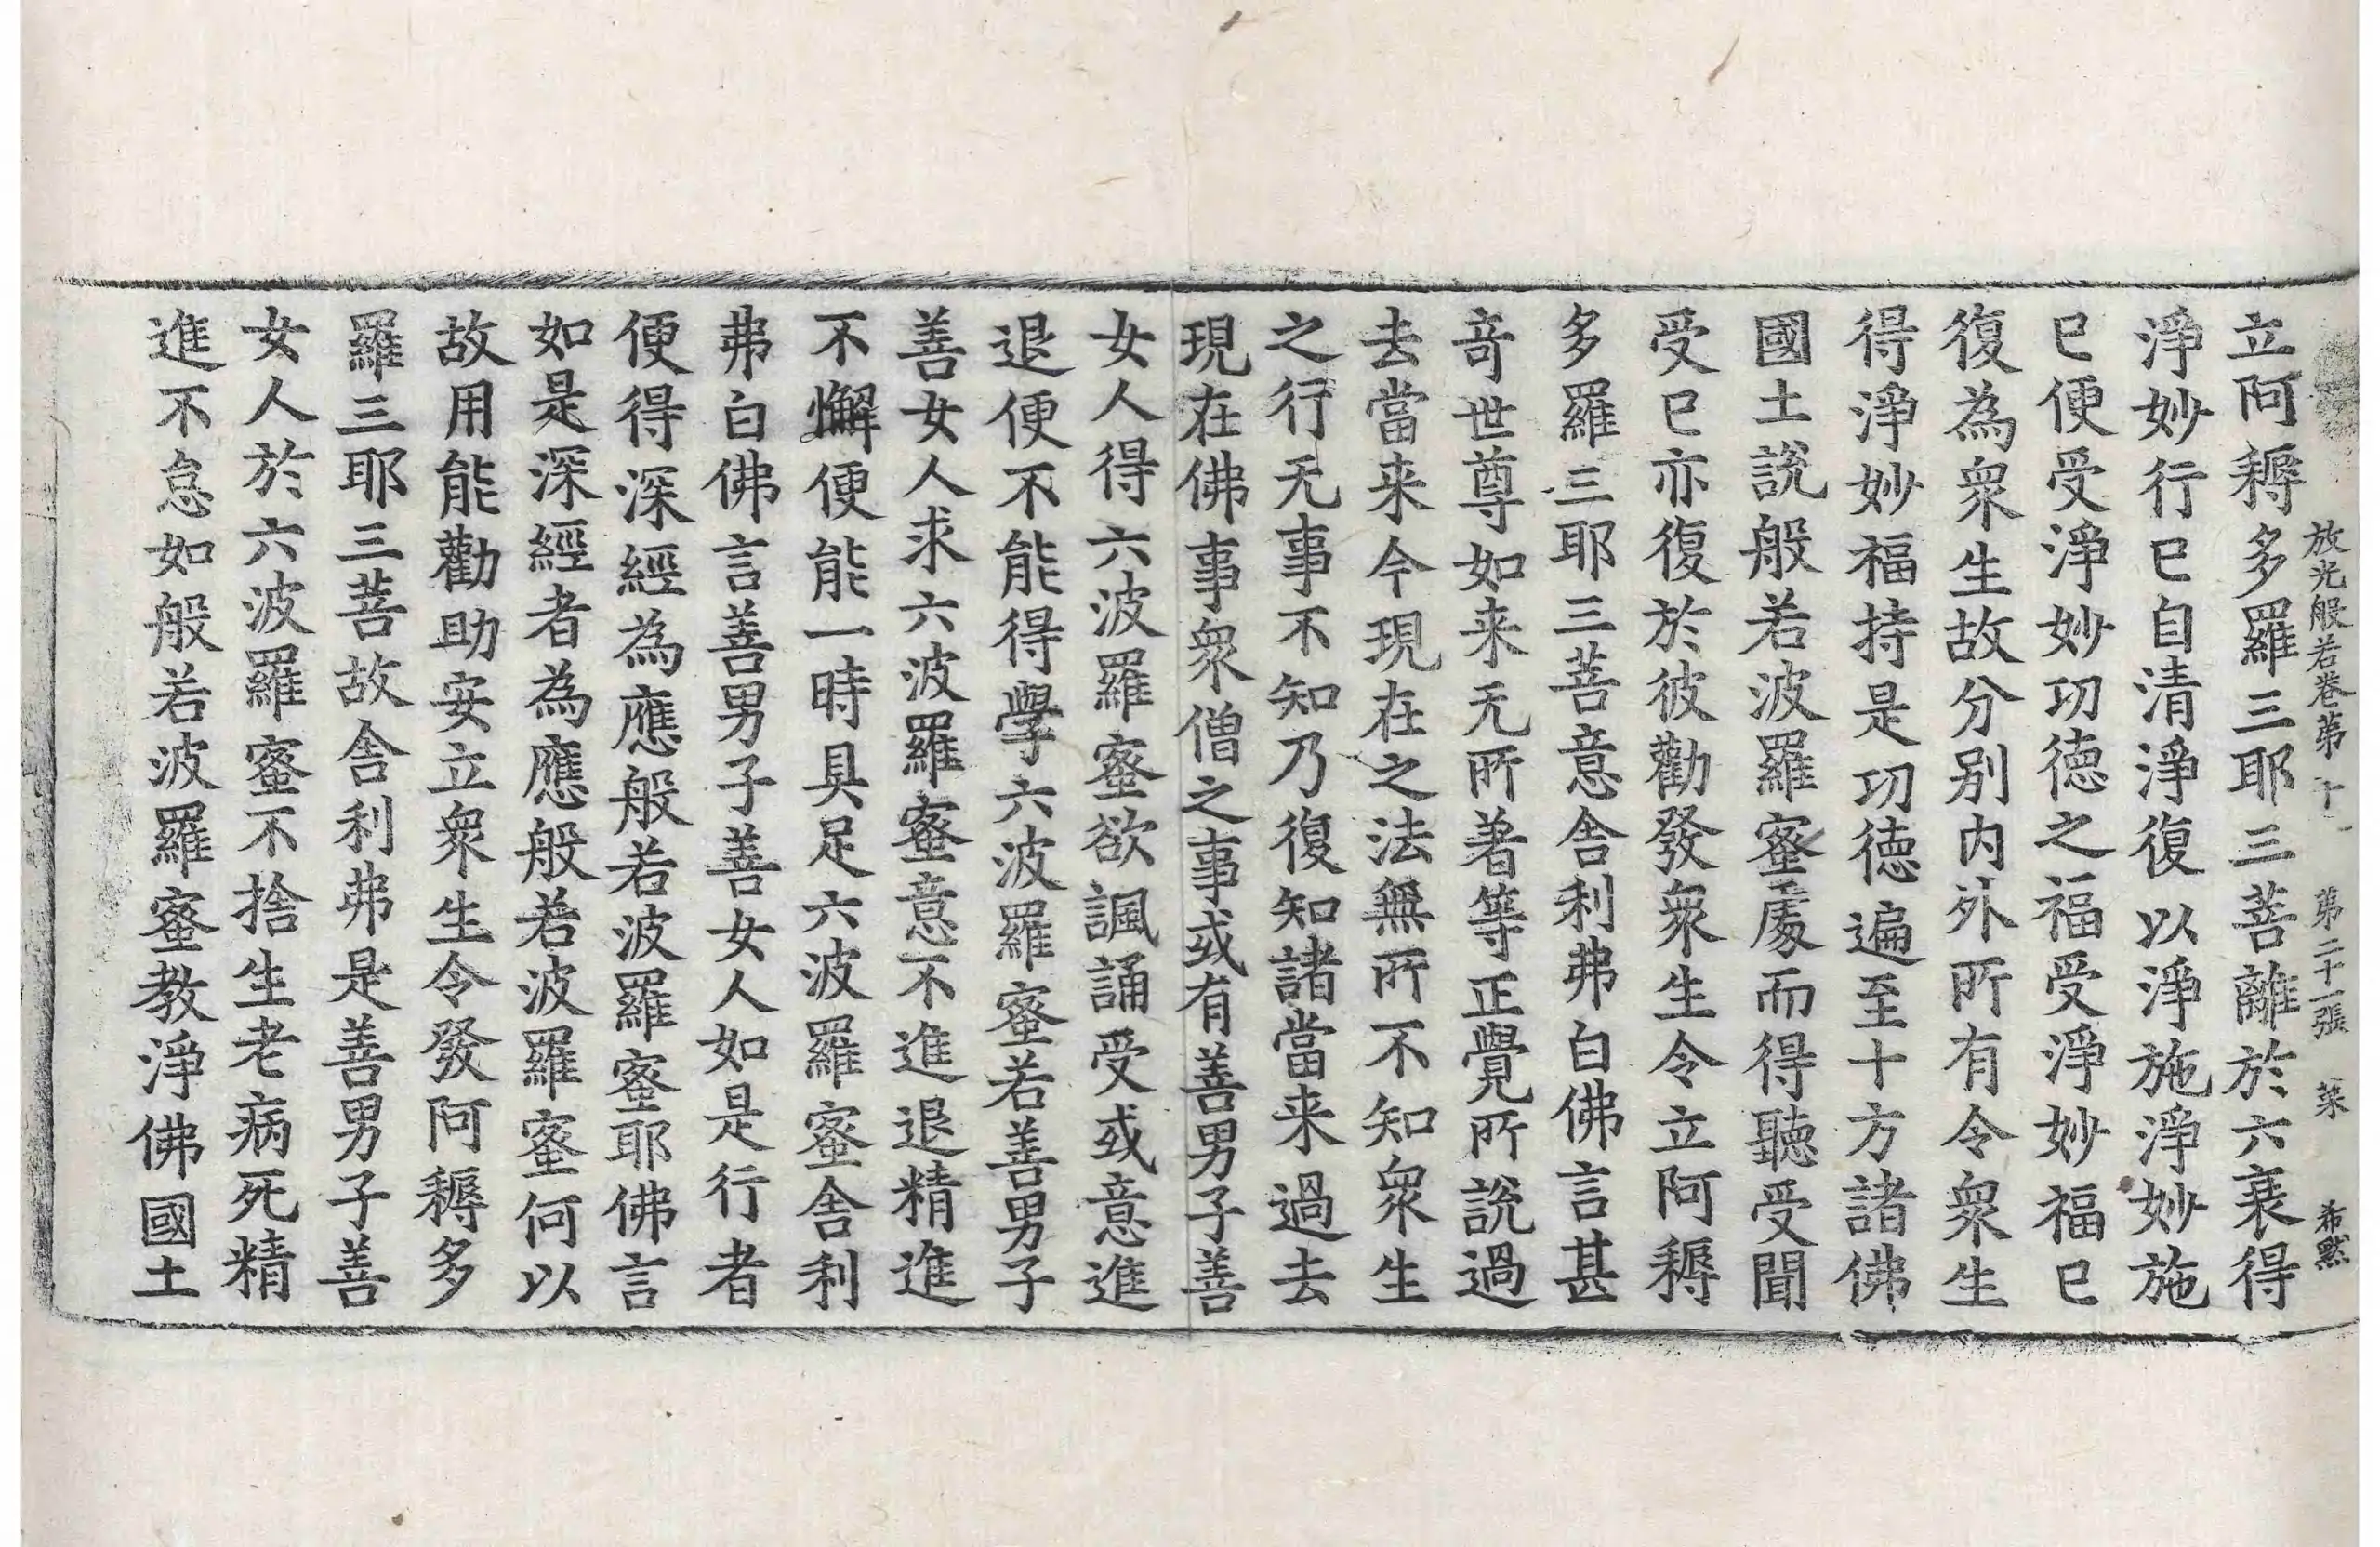 放光般若卷第十 第二十一張 菜 希黙
立阿耨多羅三耶三菩離於六衰得
淨妙行已自清淨復以淨施淨妙施
已便受淨妙㓛德之福受淨妙福已
復為衆生故分别内外所有令衆生
得淨妙福持是㓛德遍至十方諸佛
國土說般若波羅蜜處而得聽受聞
受已亦復於彼勸發衆生令立阿耨
多羅三耶三菩意舎利弗白佛言甚
竒世尊如来无所著等正覺所說過
去當来今現在之法無所不知衆生
之行无事不知乃復知諸當来過去
現在佛事衆僧之事或有善男子善
女人得六波羅蜜欲諷誦受或意進
退便不能得學六波羅蜜若善男子
善女人求六波羅蜜意不進退精進
不懈便能一時具足六波羅蜜舎利
弗白佛言善男子善女人如是行者
便得深經為應般若波羅蜜耶佛言
如是深經者為應般若波羅蜜何以
故用能勸助安立衆生令發阿耨多
羅三耶三菩故舎利弗是善男子善
女人於六波羅蜜不捨生老病死精
進不怠如般若波羅蜜教淨佛國土